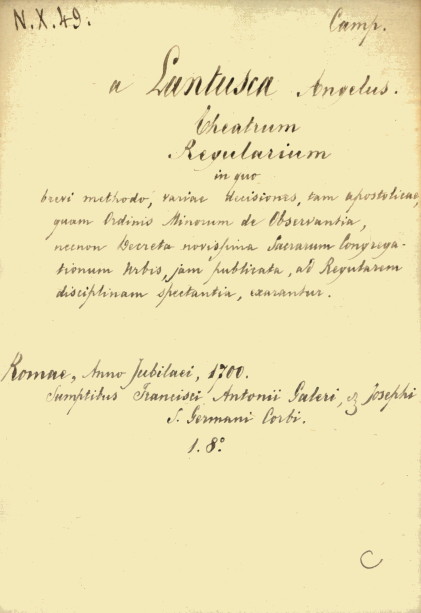 N.X.49. Camp.
a Lantusca Angelus.
Theatrum
Regularium
in quo
brevi methodo, variae decisiones, tam apostolicae,
quam Ordinis Minorum de Observantia,
necnon Decreta novissima Sacrarum Congrega-
tionum Urbis, jam publicata, ad Regularem
disciplinam spectantia, exarantur.
Romae, Anno Jubilaei, 1700.
Sumptibus Francisci Antonii Galeri, & Josephi
S. Germani Corbi.
1. 8°
C